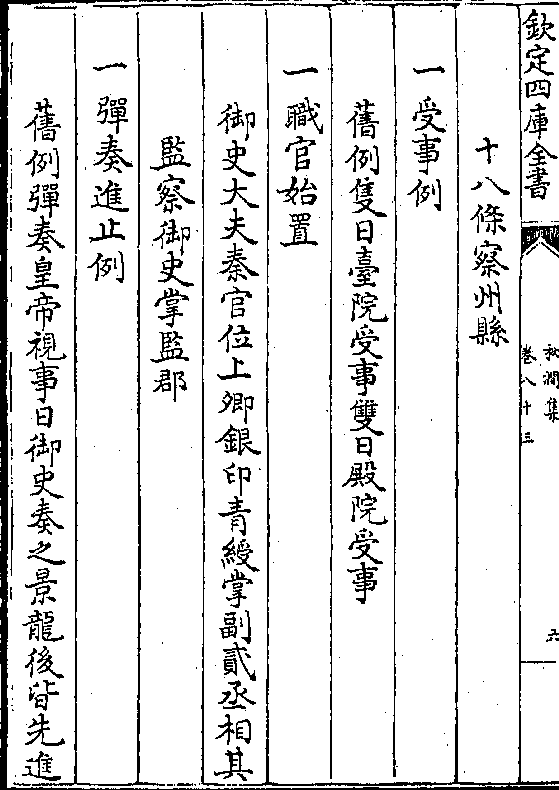 欽定四庫全書
秋澗集
卷八十三
六
十八條察州縣
一受事例
舊例隻日臺院受事雙日殿院受事
一職官始置
御史大夫秦官位上卿銀印青綬掌副貳丞相其
監察御史掌監郡
一彈奏進止例
舊例彈奏皇帝視事日御史奏之景龍後皆先進